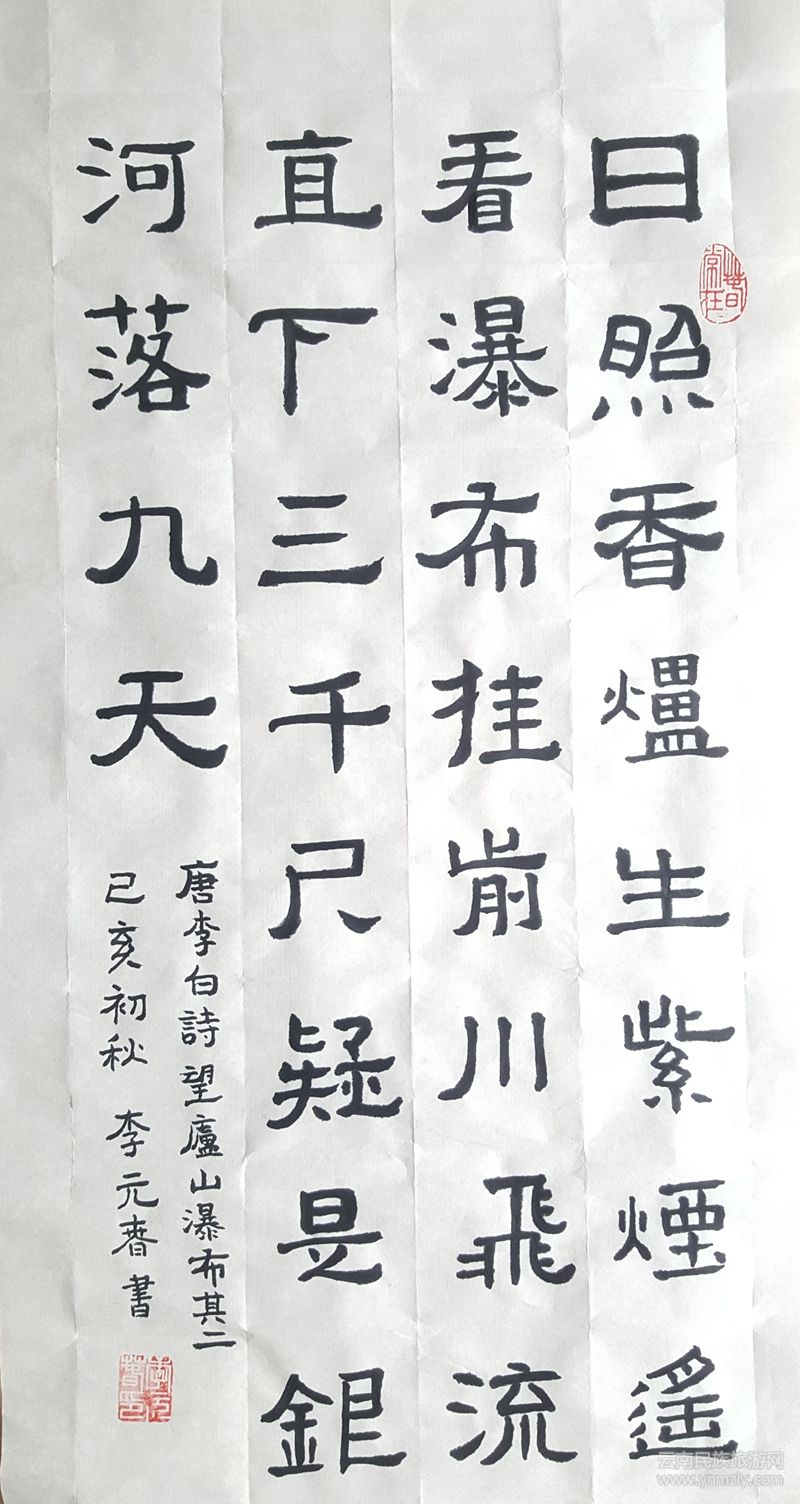 日照香爐生紫煙遙
看瀑布挂前川飛流
直下三千尺疑是銀
河落九天
唐李白詩望廬山瀑布其二
己亥初秋 李元春書
李元春印
云南民族旅游网
www.ynmzly.com